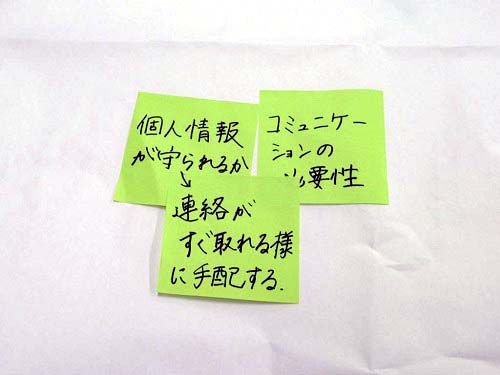 個人情報
が守られるか
↓
コミュニケー
ションの
必要性
連絡が
すぐ取れる様
に手配する.